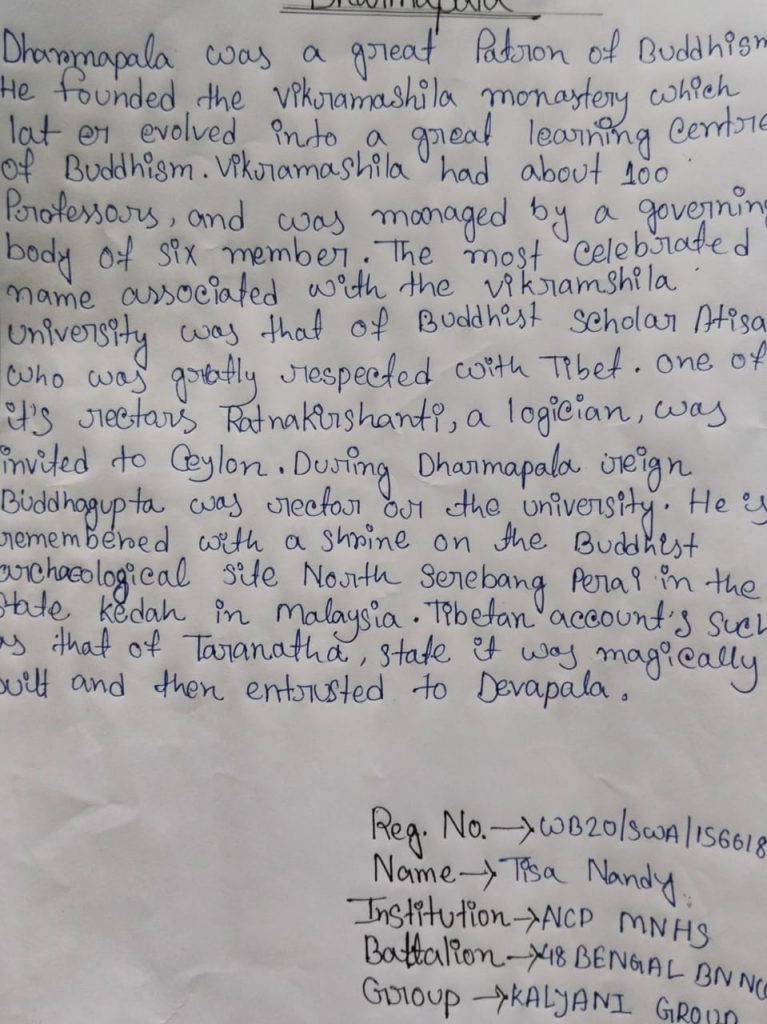 Dharmapala
Dharmapala was a great Patron of Buddhism
He founded the Vikramashila monastery which
lat er evolved into a great learning Centre
of Buddhism. Vikramashila had about 100
Professors, and was managed by a governing
body of six member. The most celebrated
name associated with the vikramshila
university was that of Buddhist Scholar Atisa
who was greatly respected with Tibet. One of
it's rectars Ratnakirshanti, a logician, was
invited to Ceylon. During Dharmapala reign
Buddhagupta was rector our the university. He is
remembered with a shrine on the Buddhist
archaeological site North Serebang Perai in the
State kedah in Malaysia. Tibetan account's such
as that of Taranatha, state it was magically
built and then entrusted to Devapala.
Reg. No. → WB20/SWA/156618
Name → Tisa Nandy
Institution → NCP MNHS
Battalion → 48 BENGAL BN NC
Group → KALYANI GROUP